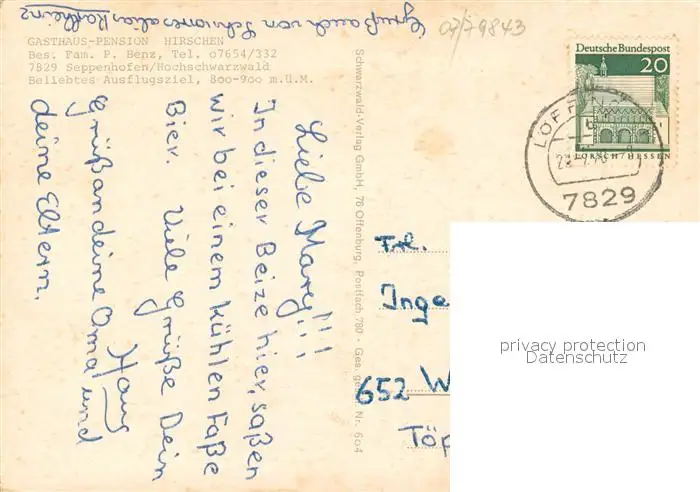 Gruß auch von
07/79843
GASTHAUS-PENSION HIRSCHEN
Bes. Fam. P. Benz, Tel. 07654/332
7829 Seppenhofen/Hochschwarzwald
Beliebtes Ausflugsziel, 800-900 m.ü.M.
Liebe Mary!!!
In dieser Beize hier, saßen
wir bei einem kühlen Faße
Bier. Viele Grüße Dein
Hans
Grüß an deine Oma und
deine Eltern.
Schwarzwald-Verlag GmbH, 76 Offenburg, Postfach 780 · Ges. gesch. Nr. 604
Deutsche Bundespost
20
LORSCH/HESSEN
LÖFFIN
7829
Frl.
Inge
652 W
Töp
privacy protection
Datenschutz